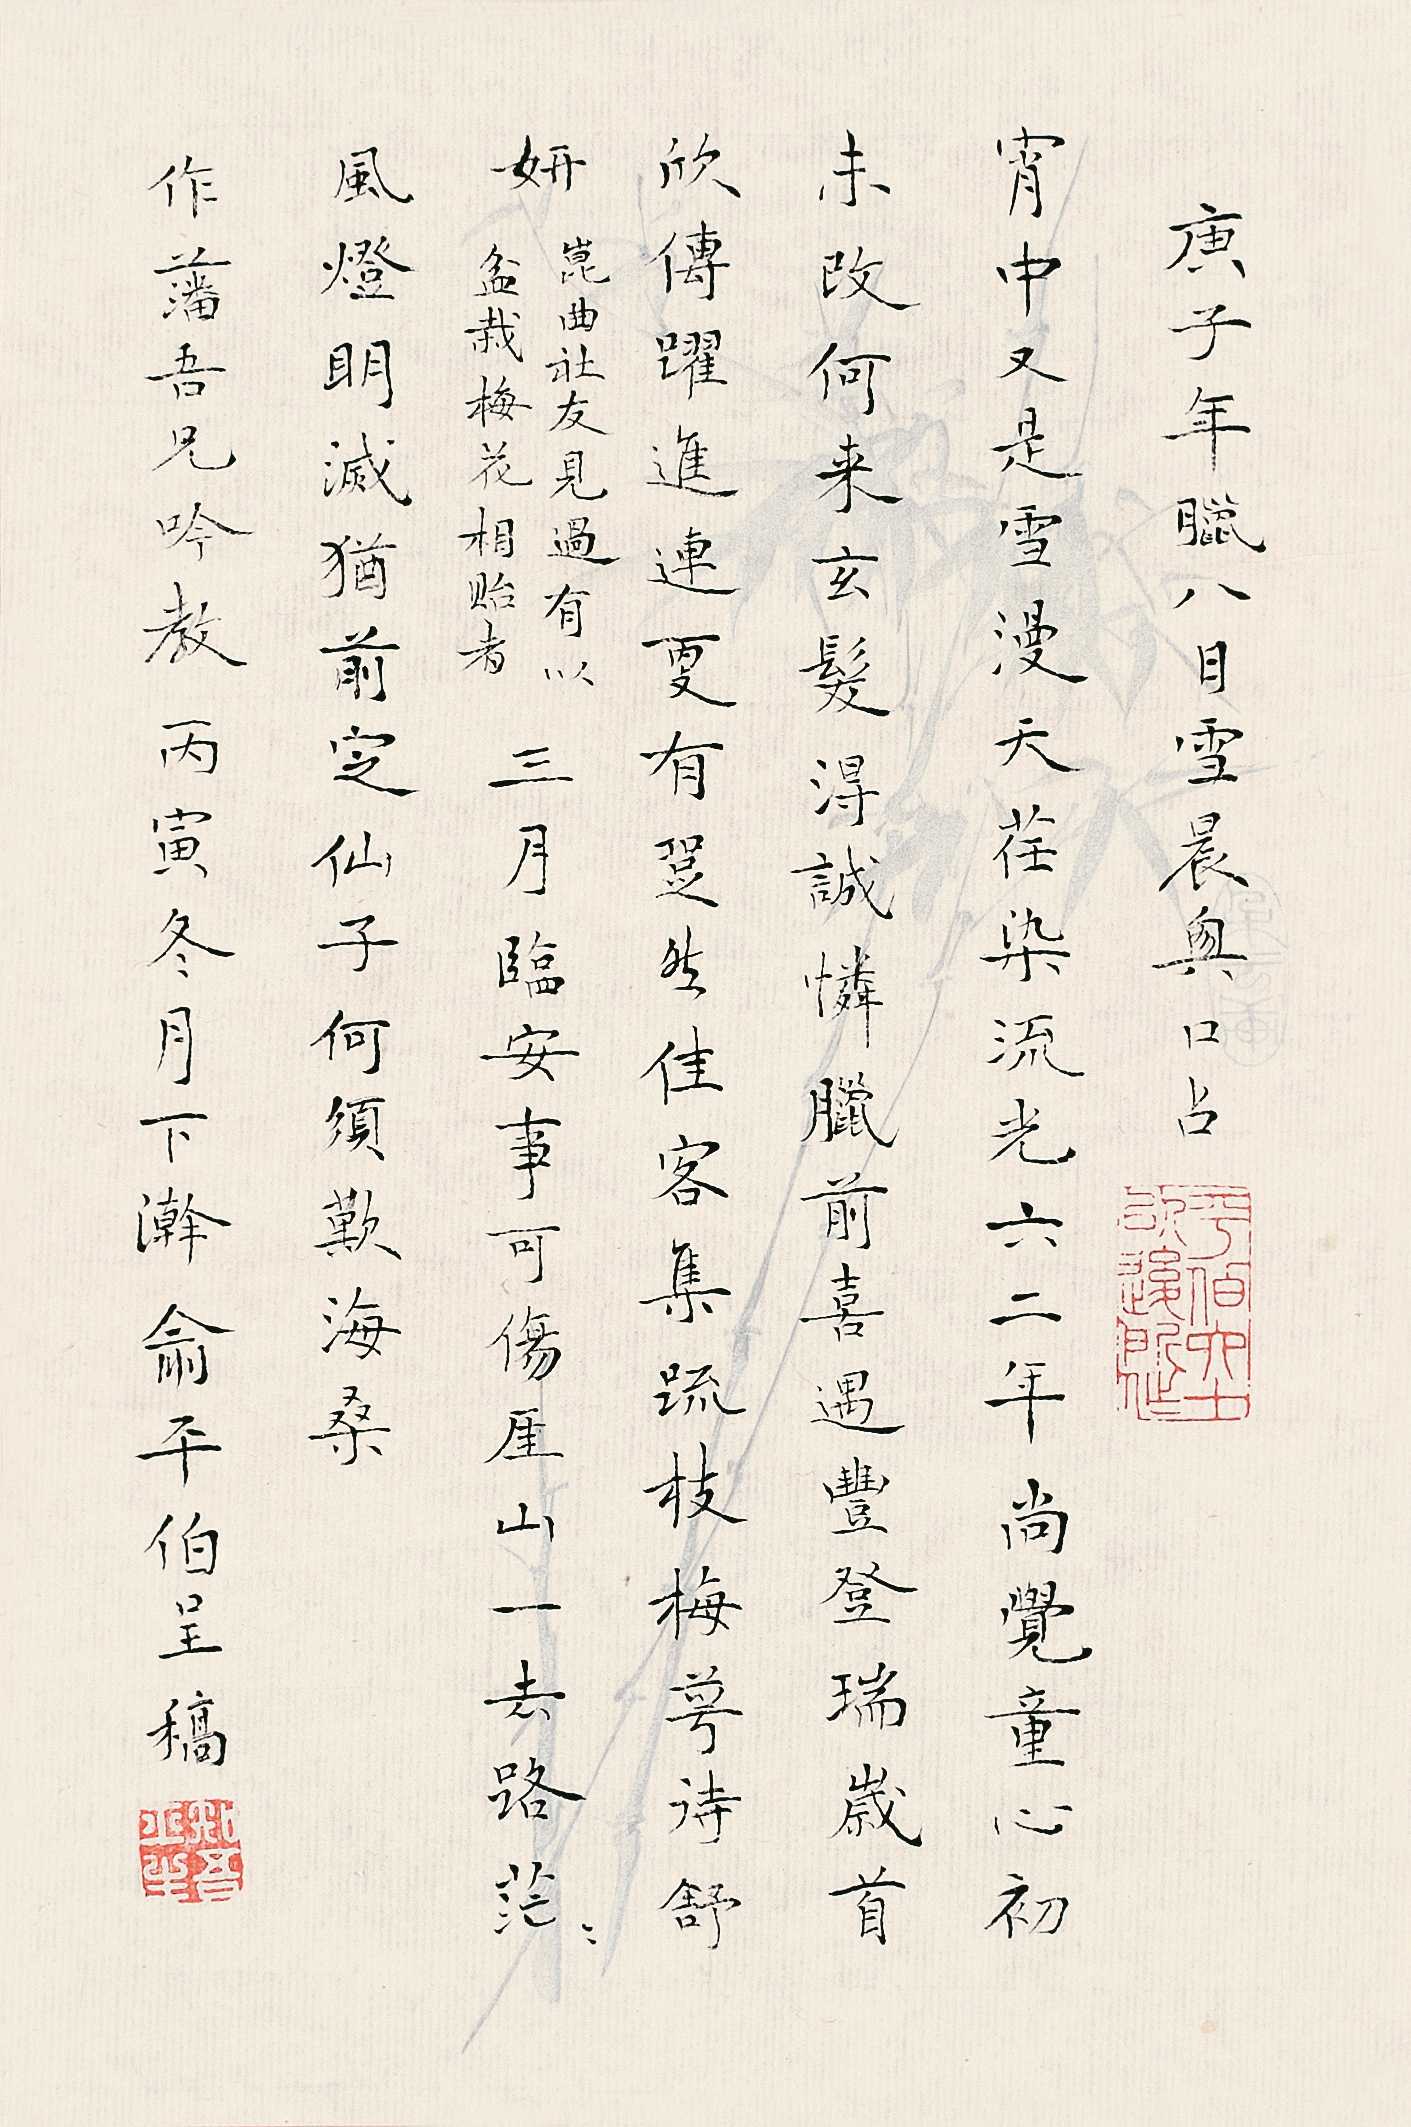 庚子年臘八日雪晨興口占
宵中又是雪漫天荏染流光六二年尚覺童心初
未改何来玄髮得誠憐臘前喜遇豐登瑞歲首
欣傳躍進連更有跫然佳客集疏枝梅萼待舒
妍
崑曲社友見過有以
盆栽梅花相貽者
三月臨安事可傷厓山一去路茫〻
風燈明滅猶前定仙子何須歎海桑
作藩吾兄吟教 丙寅冬月下澣俞平伯呈稿
平伯六十
欲還所作